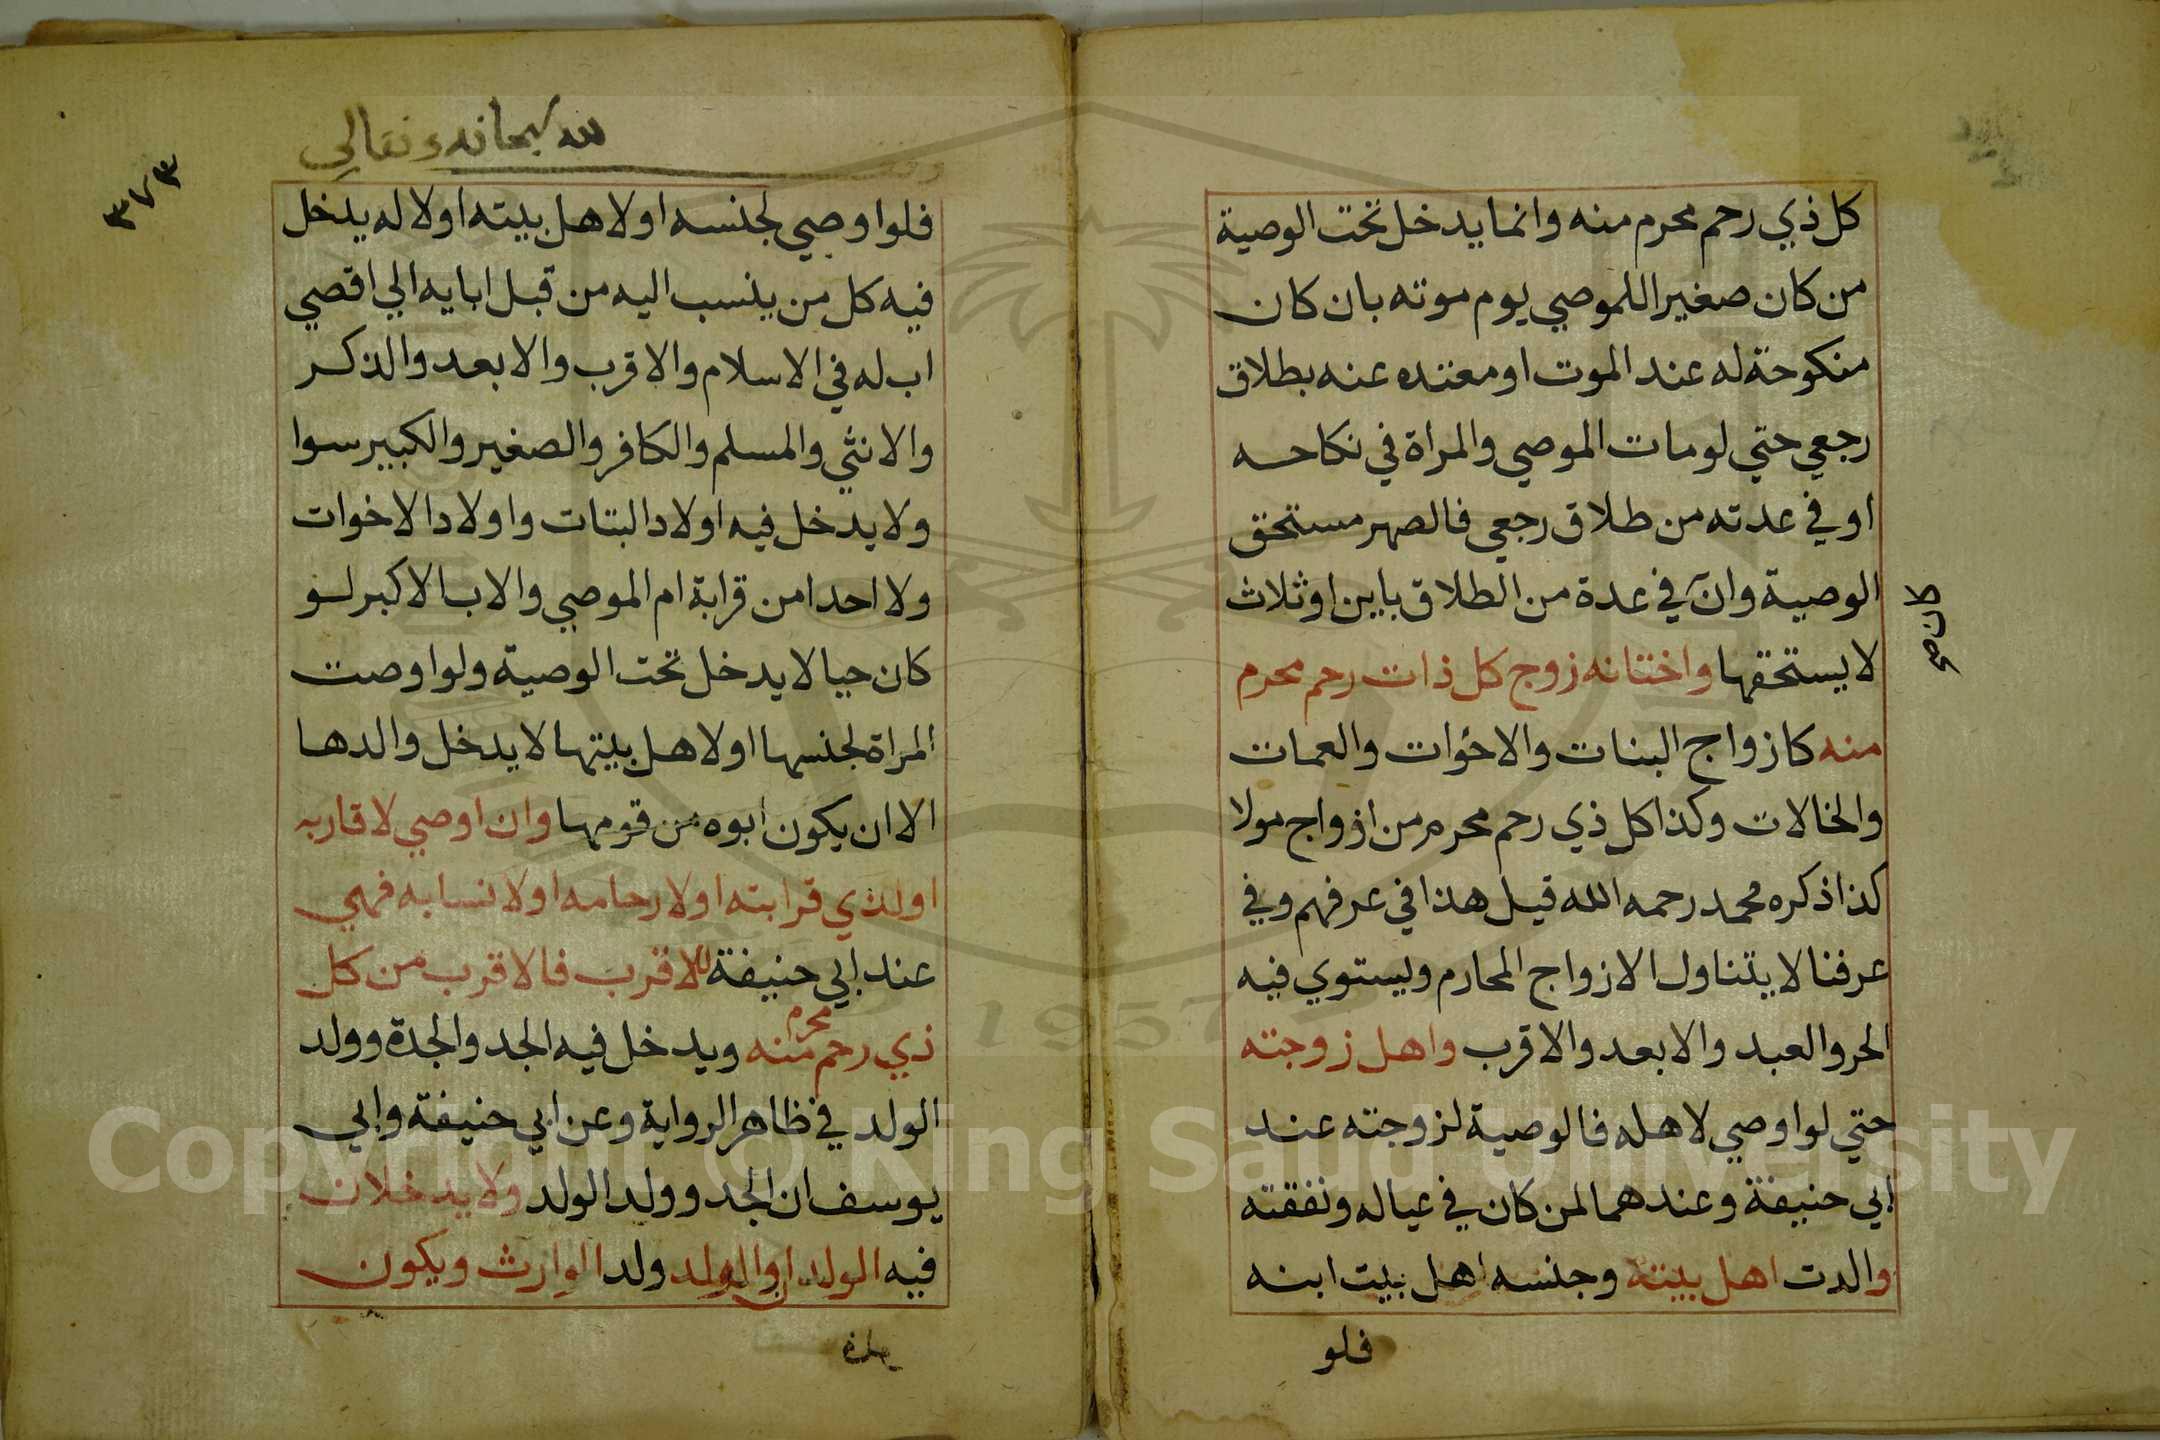 كل ذي رحم محرم منه وانما يدخل تحت الوصية
من كان صغيرا للموصي يوم موته بان كان
منكوحة له عند الموت او معتده عنه بطلاق
رجعي حتي لو مات الموصي والمراة في نكاحه
او في عدته من طلاق رجعي فالصهر مستحق
الوصية وان في عدة من الطلاق باين او ثلاث
كان صح
لا يستحقها واختانه زوج كل ذات رحم محرم
منه كازواج البنات والاخوات والعمات
والخالات وكذا كل ذي رحم محرم من ازواج مولا
كذا ذكره محمد رحمه الله قيل هذا في عرفهم وفي
عرفنا لا يتناول الازواج المحارم ويستوي فيه
الحر والعبد والابعد والاقرب واهل زوجته
حتي لو اوصي لاهله فالوصية لزوجته عند
ابي حنيفة وعندهما لمن كان في عياله ونفقته
والدت اهل بيته وجنسه اهل بيت ابنه
فلو
لله سبحانه وتعالي
٣٧٣
فلو اوصي لجنسه او لاهل بيته او لاله يدخل
فيه كل من ينسب اليه من قبل ابايه الي اقصي
اب له في الاسلام والاقرب والابعد والذكر
والانثي والمسلم والكافر والصغير والكبير سوا
ولا يدخل فيه اولاد البتات واولاد الاخوات
ولا احدا من قرابة ام الموصي والاب الاكبر لو
كان حيا لا يدخل تحت الوصية ولو اوصت
المراة لجنسها او لاهل بيتها لا يدخل والدها
الا ان يكون ابوه من قومها وان اوصي لاقاربه
او لذي قرابته او لارحامه او لانسابه فهي
عند ابي حنيفة للاقرب فالاقرب من كل
ذي رحم محرم منه ويدخل فيه الجد والجدة وولد
الولد في ظاهر الرواية وعن ابي حنيفة وابي
يوسف ان الجد وولد الولد ولا يدخلان
فيه الولدان والولد ولد الوارث ويكون
Copyright © King Saud University
1957